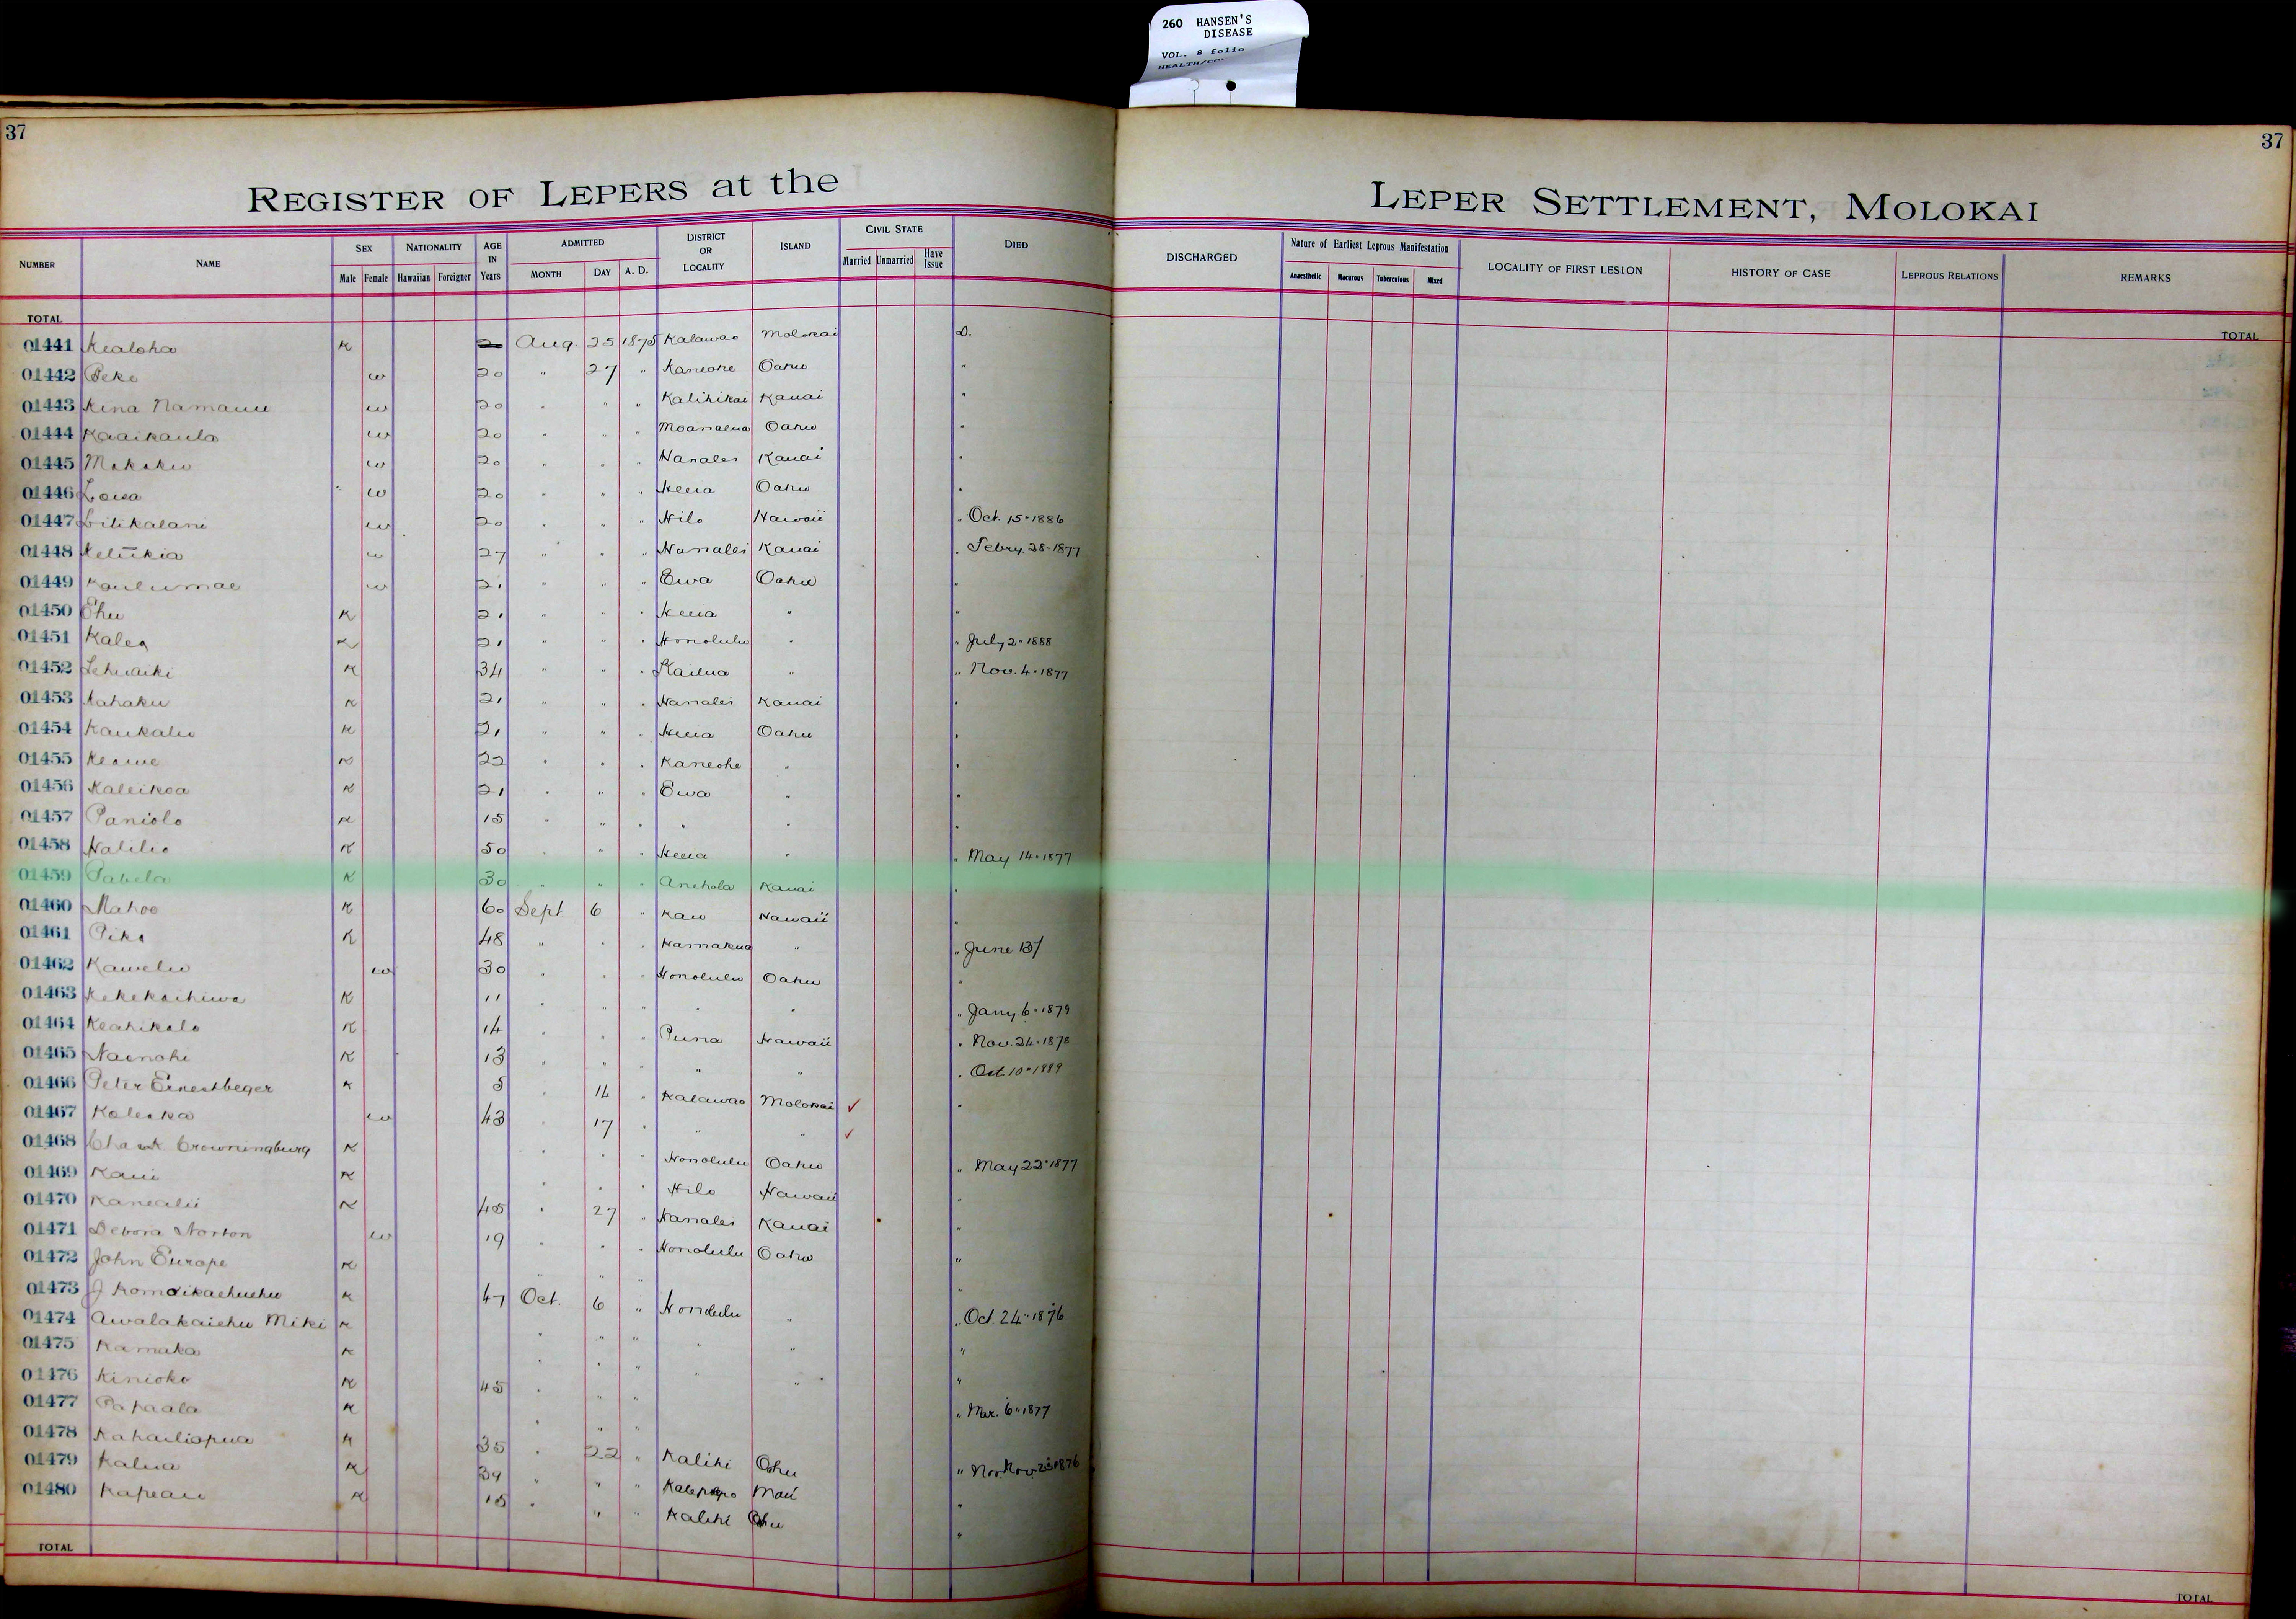 260 HANSEN'S
DISEASE
VOL. 8 folio
37
37
REGISTER OF LEPERS at the LEPER SETTLEMENT, MOLOKAI
NUMBER NAME SEX Male Female NATIONALITY Hawaiian Foreigner AGE IN Years ADMITTED MONTH DAY A. D. DISTRICT OR LOCALITY ISLAND CIVIL STATE Married Unmarried Have Issue DIED DISCHARGED Nature of Earliest Leprous Manifestation Anaesthetic Macurous Tuberculous Mixed LOCALITY OF FIRST LESION HISTORY OF CASE LEPROUS RELATIONS REMARKS
TOTAL TOTAL
01441 Kealoha K 20 Aug. 25 1875 Kalawao Molokai D.
01442 Peke w 20 " 27 " Kaneohe Oahu "
01443 Kina Namauu w 20 " " " Kalihikai Kauai "
01444 Kaaikaula w 20 " " " Moanalua Oahu "
01445 w 20 " " " Hanalei Kauai "
01446 Loisa w 20 " " " Heeia Oahu "
01447 Lilikalani w 20 " " " Hilo Hawaii " Oct. 15 " 1886
01448 Keliikia w 27 " " " Hanalei Kauai " Febry. 28 " 1877
01449 Kaulumae w 21 " " " Ewa Oahu "
01450 Ehu K 21 " " " Heeia " "
01451 Kalea K 21 " " " Honolulu " " July 2 " 1888
01452 Lehuaiki K 34 " " " Kailua " " Nov. 4 " 1877
01453 K 21 " " " Hanalei Kauai "
01454 Kaukaliu K 21 " " " Heeia Oahu "
01455 Keawe K 22 " " " Kaneohe " "
01456 Kaleikoa K 21 " " " Ewa " "
01457 Paniolo K 15 " " " " " "
01458 Halilio K 50 " " " Heeia " " May 14 " 1877
01459 Pabela K 30 " " " Anehola Kauai "
01460 Mahoe K 60 Sept 6 " Kau Hawaii "
01461 Piko K 48 " " " Hamakua " " June 13/
01462 Kawelu w 30 " " " Honolulu Oahu "
01463 Kekekachiwa K 11 " " " " " " Jany. 6 " 1879
01464 Keahikolo K 14 " " " Puna Hawaii " Nov. 24 " 1878
01465 Nainohi K 13 " " " " " " Oct 10 " 1889
01466 Peter Ernestbeger K 5 " 14 " Kalawao Molokai ✓ "
01467 Kaleoka w 43 " 17 " " " ✓
01468 Crowningburg K " " " Honolulu Oahu " May 22 " 1877
01469 Kaui K " " " Hilo Hawaii "
01470 Kanealii K 45 " 27 " Hanalei Kauai "
01471 Debora Norton w 19 " " " Honolulu Oahu "
01472 John Europe K " " " "
01473 J K 47 Oct. 6 " Honolulu " " Oct. 24 " 1876
01474 Awalakaiehu Miki K " " " " " "
01475 Kamaka K " " " " " "
01476 Kinioko K 45 " " " " Mar. 6 " 1877
01477 Papaala K " " "
01478 Kahailiopua K 35 " 22 " Kalihi Oahu " Nov. 25 1876
01479 Kalua K 39 " " " Maui "
01480 Kapeau K 15 " " " Kalihi Oahu "
TOTAL TOTAL